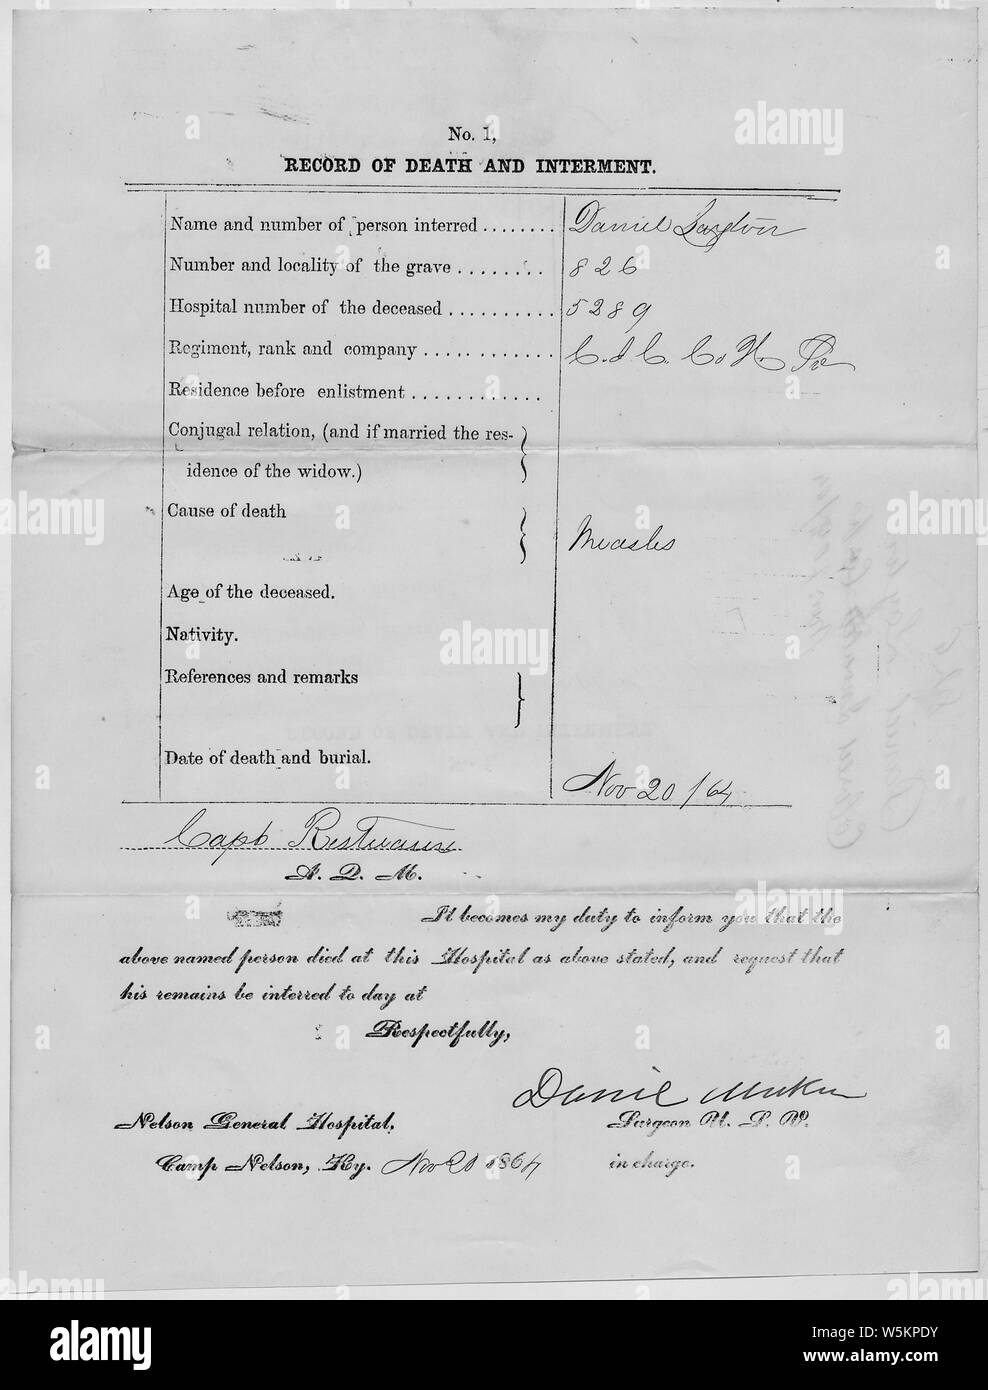 No. 1,
RECORD OF DEATH AND INTERMENT.
Name and number of person interred ........ Daniel
Number and locality of the grave ........ 826
Hospital number of the deceased .......... 5289
Regiment, rank and company ............ C. d C. Co H.
Residence before enlistment ............
Conjugal relation, (and if married the res-
idence of the widow.)
Cause of death
Measles
Age of the deceased.
Nativity.
References and remarks
Date of death and burial.
Nov 20 /64
Capt
A. Q. M.
It becomes my duty to inform you that the
above named person died at this Hospital as above stated, and request that
his remains be interred to day at
Respectfully,
Nelson General Hospital,
Surgeon U. S. V.
Camp Nelson, Ky. Nov 20 1864
in charge.
alamy
W5KPDY
www.alamy.com